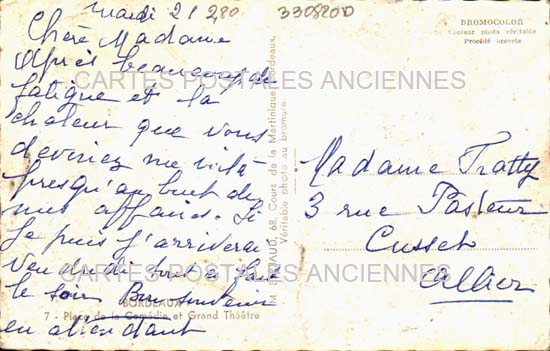 mardi 21 280 330820D
Chère Madame
Après beaucoup de
fatigue et la
chaleur que vous
devinez me voilà
presqu'au bout de
mes affaires. Si
Je puis j'arriverai
Vendredi tout à fait
le soir
en attendant
BORDEAUX
7 - Place de la Comédie et Grand Théâtre
68, Cours de la Martinique, Bordeaux.
Véritable photo au bromure.
BROMOCOLOR
Couleur photo véritable
Procédé breveté
Madame Tratty
3 rue Pasteur
Cusset
Allier
CARTES POSTALES ANCIENNES
CARTES POSTALES ANCIENNES